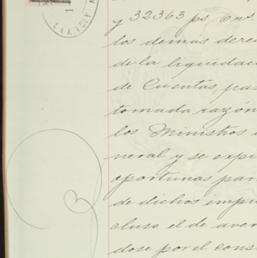 y 32363 ps
los demas dere
de la liquidac
de Cuentas, pa
tomada razón
los Ministros
neral y se expi
oportunas par
de dichos impu
cluso el de aver
dose por el cons